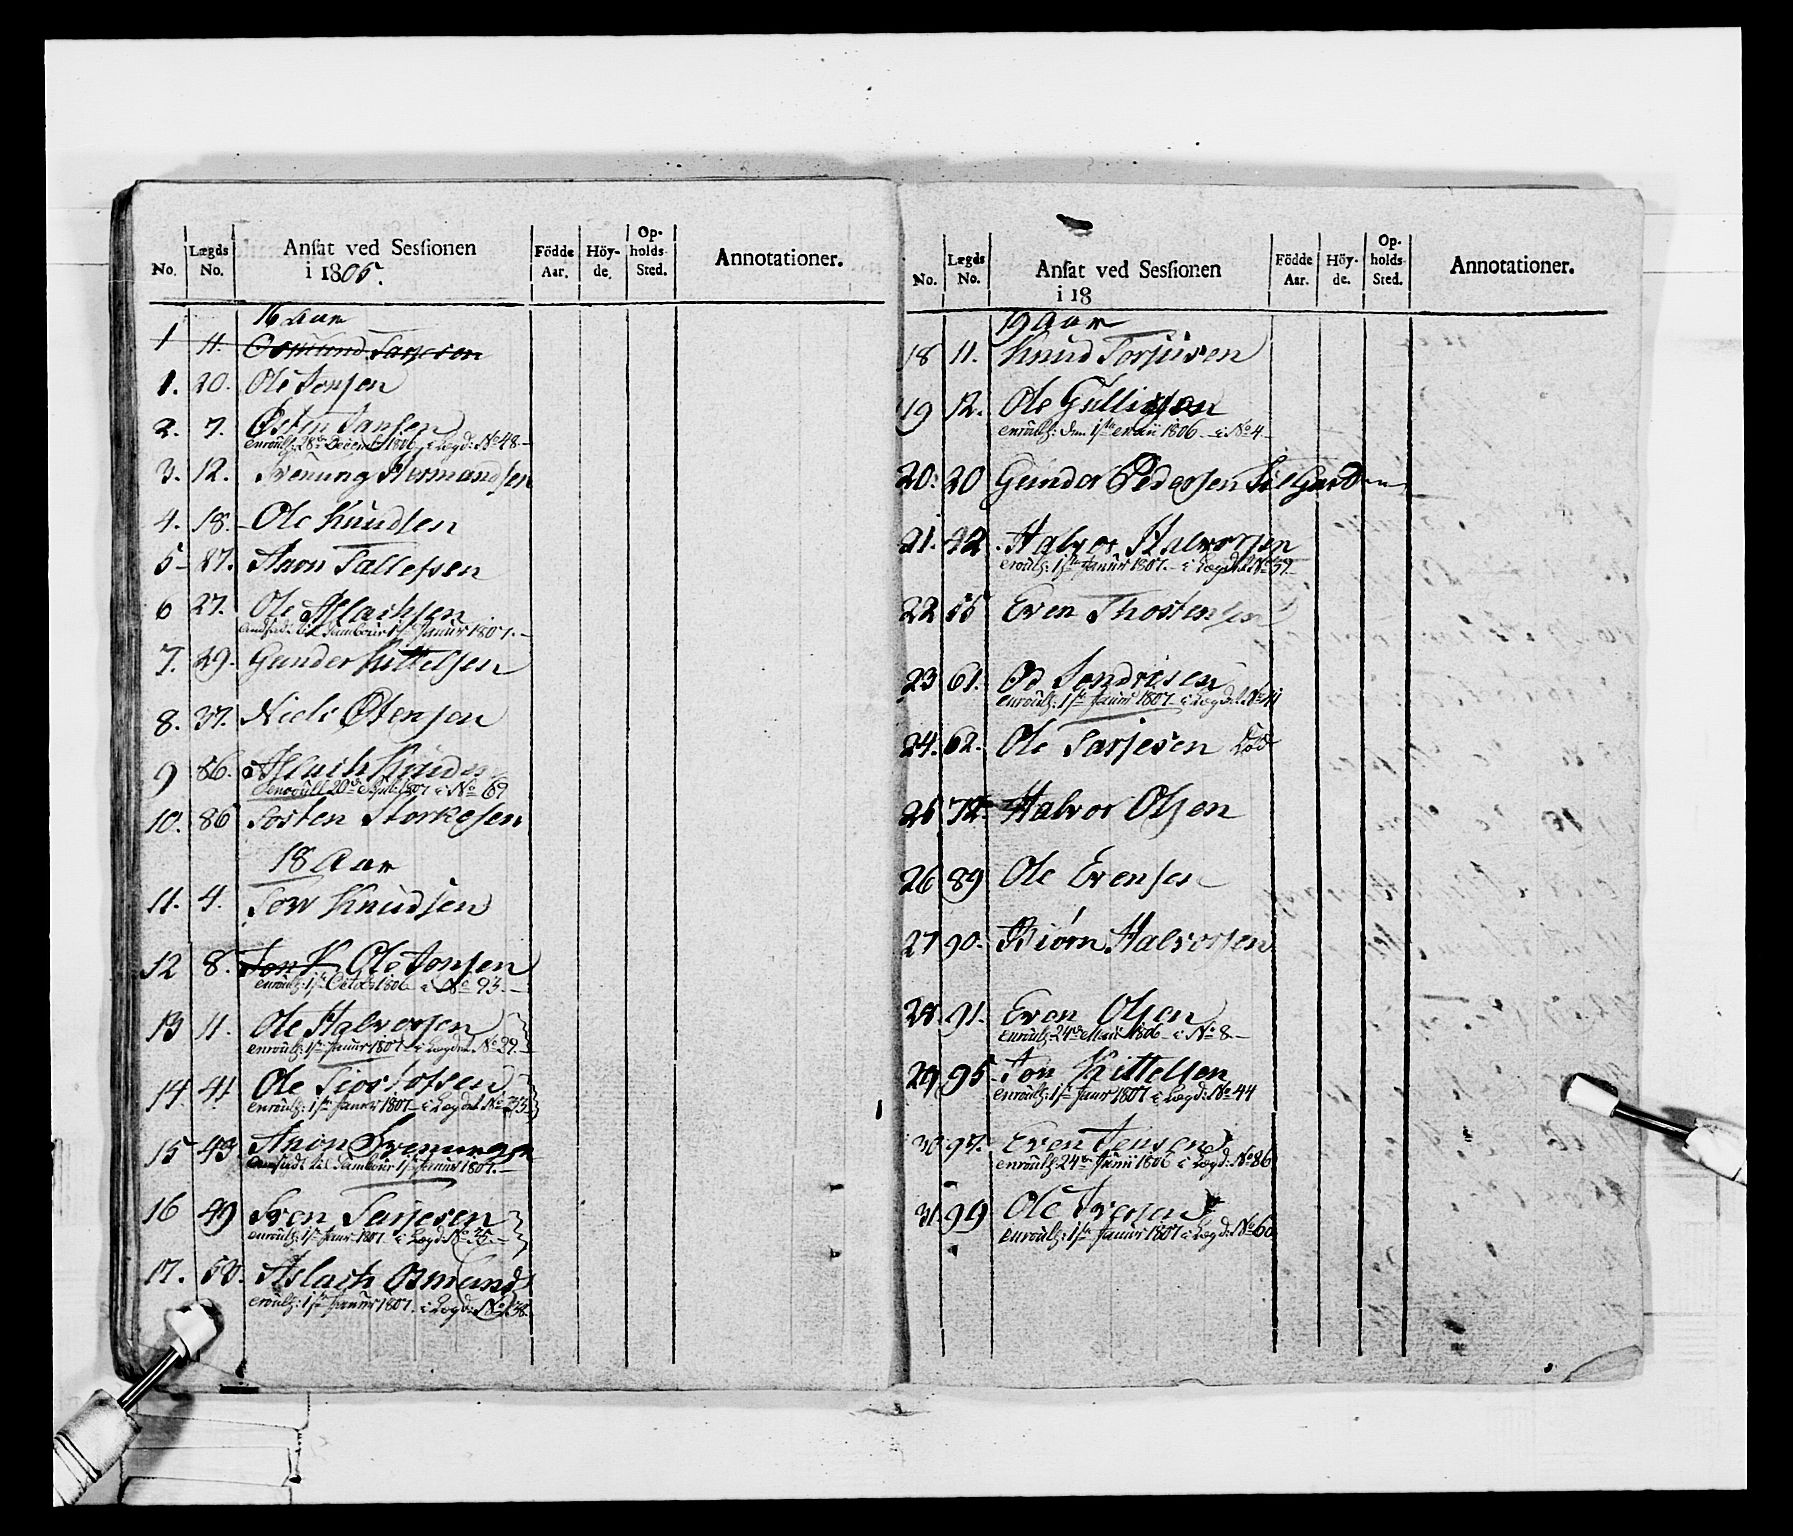 No. Lægds No. Ansat ved Sessionen i 1805. Födde Aar. Höyde. Opholds Sted. Annotationer.
16 Aar
1 11. Osmund Tarjeson
1. 20. Ole Jonsen
2. 7. Østen Jansen
enroull: 28de Decemb 1806 i Lægd: No 48.
3. 12. Svenung Hermandsen
4. 18. Ole Knudsen
5 87. Aron Tallefsen
6 27. Ole Aslachsen
Andsad: til Tambour 1ste Janur 1807.
7. 29. Gunder Kittelsen
8. 37. Niels Østensen
9 86. Aslach Knuds
enroull 20de 1807 i No 69
10. 86 Tosten Storkesen
18 Aar
11. 4. Tov Knudsen
12 8. Jon K Ole Jonsen
enroull: 1ste Octob 1806 i No 93.
13 11. Ole Halvorsen
enroull: 1ste Janur 1807 i Lægdet No 29.
14 41 Ole Tiostofsen
enroull: 1ste Januar 1807 i Lægdet No 33
15 43 Aron Svenungs
Ansadt til Tambour 1ste Januar 1807.
16 49 Sven Tarjesen
enroull: 1ste Janr 1807. i Lægd: No 35.
17. 50. Aslach Osmunds
enroull: 1ste Januar 1807. i Lægd: No 38.
No. Lægds No. Ansat ved Sessionen i 18 Födde Aar. Höyde. Opholds Sted. Annotationer.
19 Aar
18 11. Knud Torjusen
19 12. Ole Gulligsen
enroull: den 1ste 1806 i No 4
20. 20 Gunder Pedersen til Garden
21. 42. Halvor Halvorsen
enroull: 1ste Janur 1807. i Lægdet No 59.
22 55 Even Thostensen
23 61. Od Sondresen
enroull: 1ste Januar 1807 i Lægdet No 41
24. 62. Ole Tarjesen Död
25 72. Halvor Olsen
26 89 Ole Evensen
27 90. Biörn Halvorsen
28 91. Even Olsen
enroull: 24de Marti 1806 i No 8
29 95 Jon Kittelsen
enroull: 1ste Janr 1807 i Lægd: No 44
30 97. Even Jensen
enroull: 24de Junii 1806 i Lægd: No 86
31. 99 Ole Iversen
enroull: 1ste Januar 1807 i Lægd: No 60